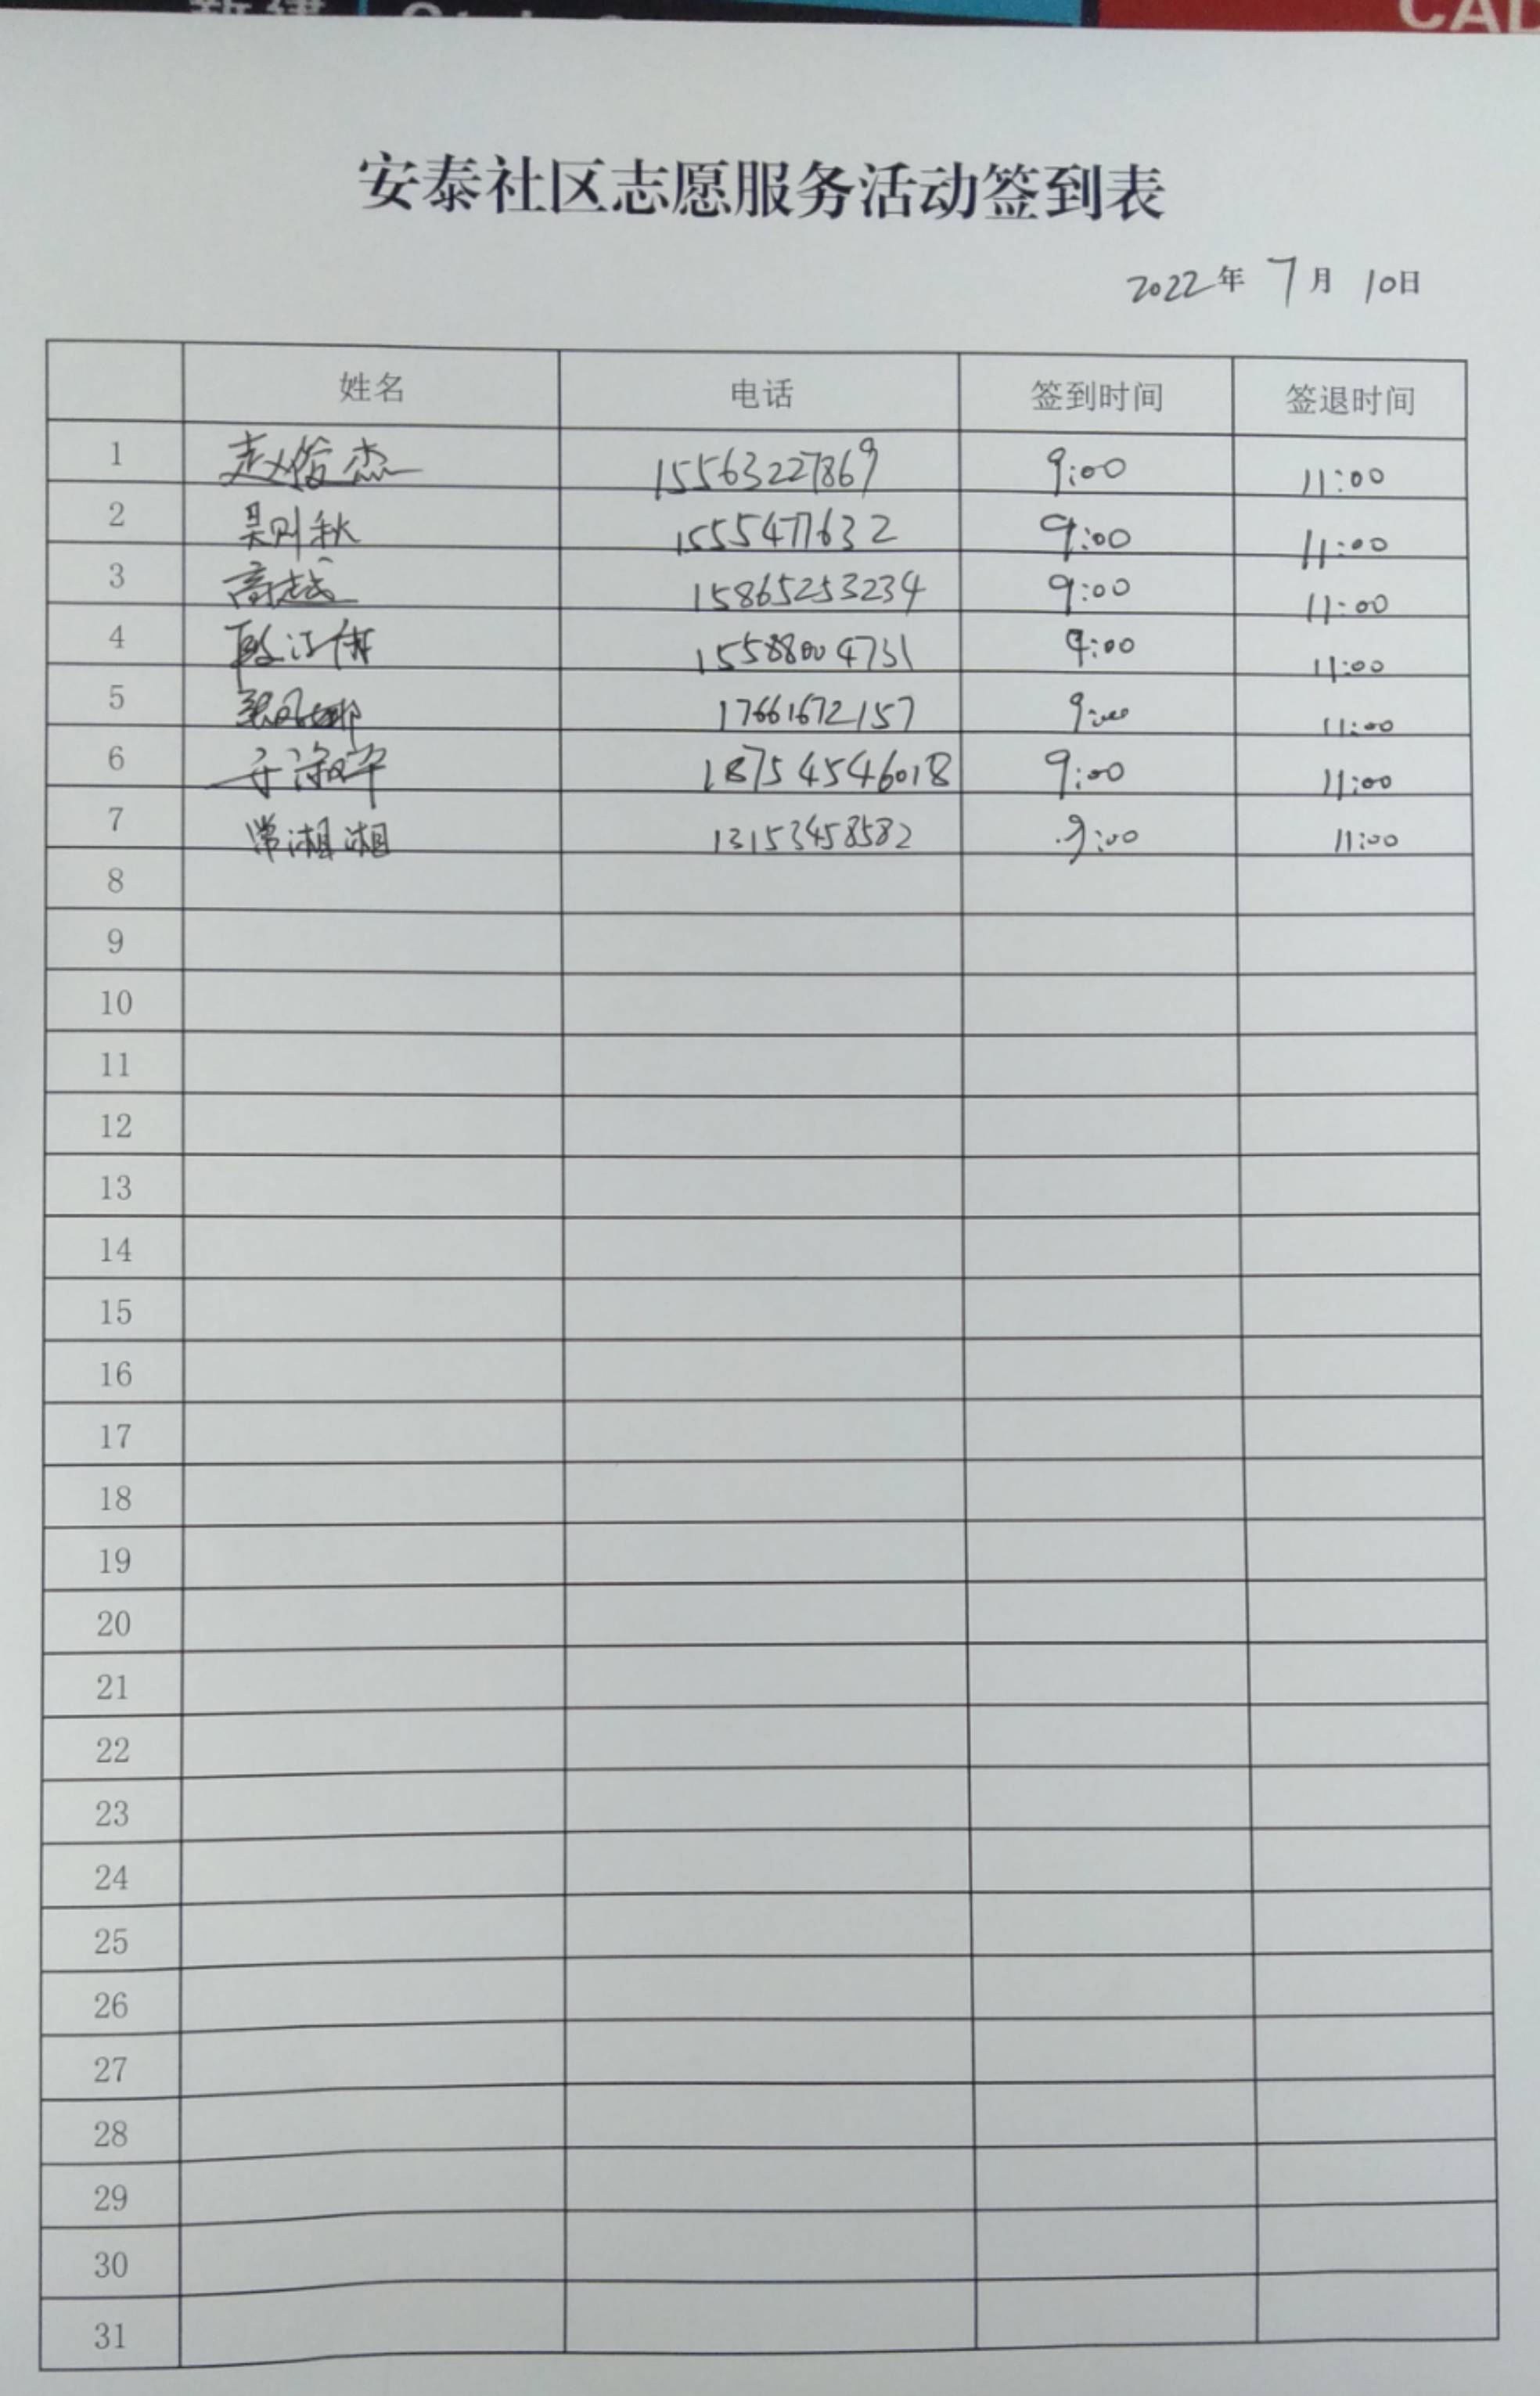 CAD
安泰社区志愿服务活动签到表
2022年 7月 10日
姓名 电话 签到时间 签退时间
1 赵俊杰 15563227869 9:00 11:00
2 秋 1555477632 9:00 11:00
3 高越 15865253234 9:00 11:00
4 15588004731 9:00 11:00
5 17661672157 9:00 11:00
6 于淑 18754546018 9:00 11:00
7 常湘湘 13153458582 9:00 11:00
8
9
10
11
12
13
14
15
16
17
18
19
20
21
22
23
24
25
26
27
28
29
30
31